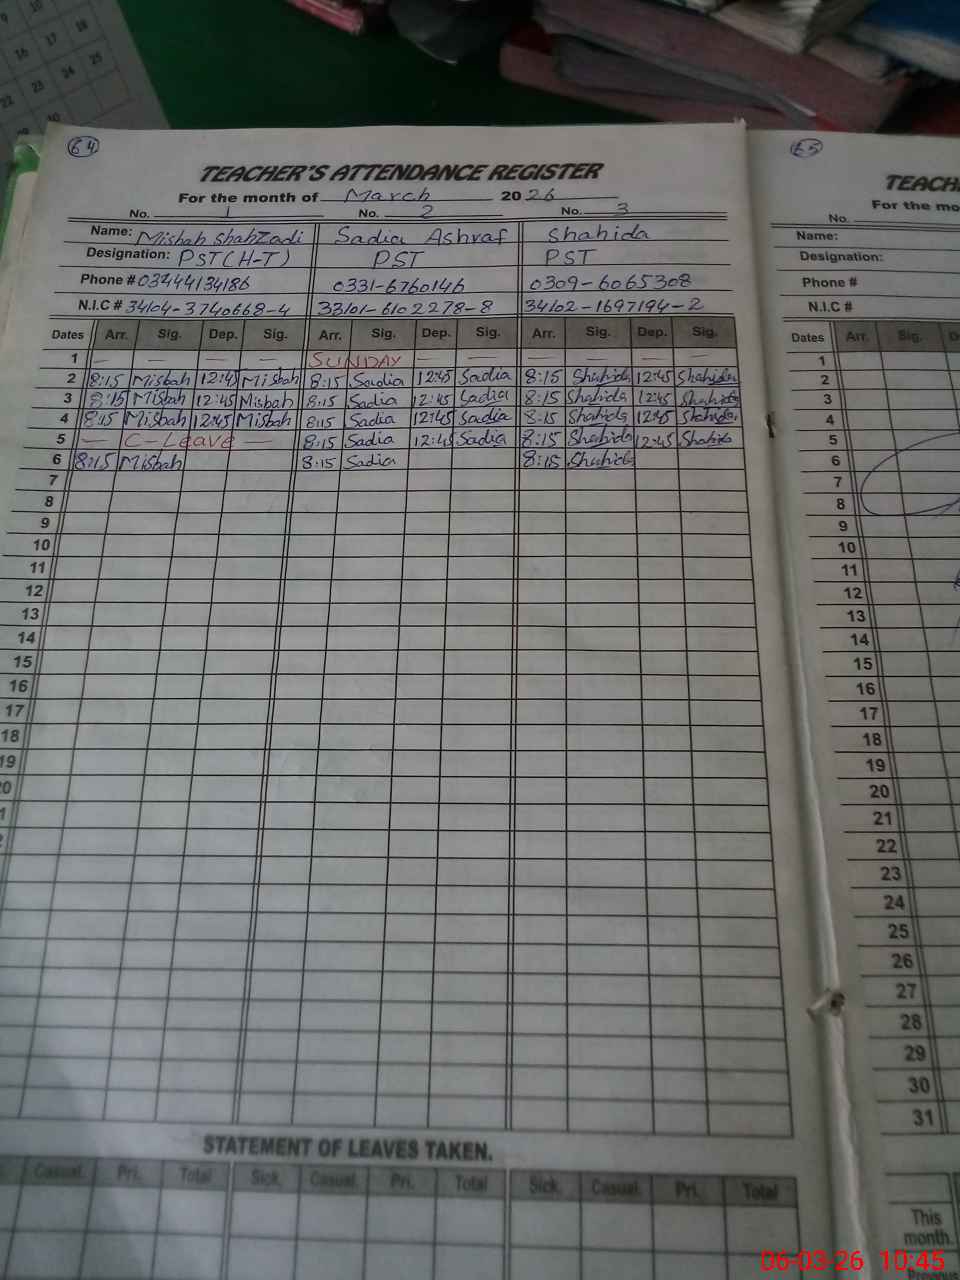 9 10
16 17 18
22 23 24 25
64
TEACHER'S ATTENDANCE REGISTER
For the month of March 2026
No. 1 No. 2 No. 3
Name: Misbah Shahzadi Sadia Ashraf Shahida
Designation: PST(H-T) PST PST
Phone # 03444134186 0331-6760146 0309-6065308
N.I.C # 34104-3740668-4 33101-6102278-8 34102-1697194-2
Dates Arr. Sig. Dep. Sig. Arr. Sig. Dep. Sig. Arr. Sig. Dep. Sig.
1 — — — — SUNDAY — — — — — —
2 8:15 Misbah 12:45 Misbah 8:15 Saadia 12:45 Sadia 8:15 Shahida 12:45 Shahida
3 8:15 Misbah 12:45 Misbah 8:15 Sadia 12:45 Sadia 8:15 Shahida 12:45 Shahida
4 8:15 Misbah 12:45 Misbah 8:15 Sadia 12:45 Sadia 8:15 Shahida 12:45 Shahida
5 — C-Leave — 8:15 Sadia 12:45 Sadia 8:15 Shahida 12:45 Shahida
6 8:15 Misbah 8:15 Sadia 8:15 Shahida
7
8
9
10
11
12
13
14
15
16
17
18
19
STATEMENT OF LEAVES TAKEN.
Casual. Pri. Total Sick. Casual. Pri. Total Sick. Casual. Pri. Total
65
TEACH
For the mo
No.
Name:
Designation:
Phone #
N.I.C #
Dates Arr. Sig. D
1
2
3
4
5
6
7
8
9
10
11
12
13
14
15
16
17
18
19
20
21
22
23
24
25
26
27
28
29
30
31
This
month.
06-03-26 10:45